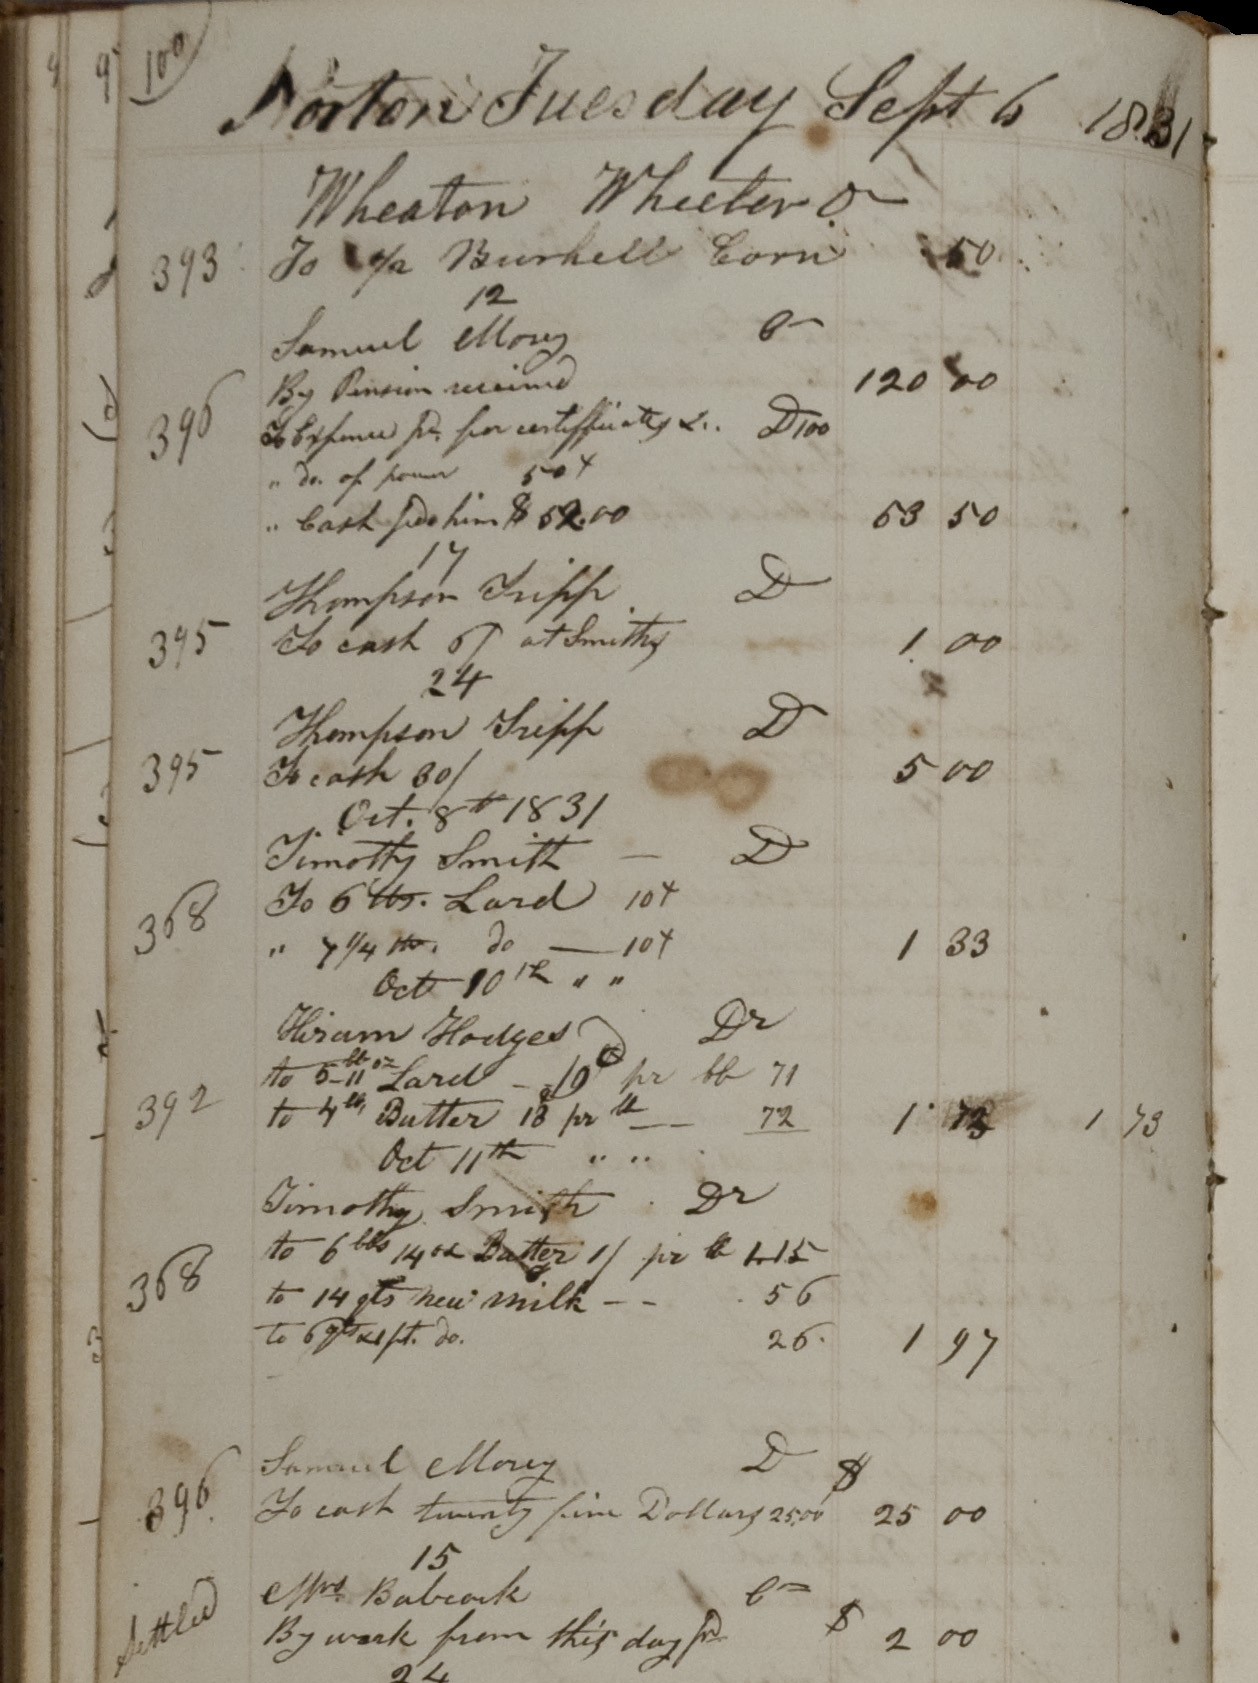 100
Norton Tuesday Sept 6 1831
Wheaton Wheeler D
393 To 1/2 Burhell Corn 50
12
Samuel Morey C
By Pension received 120 00
396 To Expence pd. for certifficates &c. D 100
" do. of power 50
" Cash pd him $ 52.00 53 50
17
Thompson Tripp D
395 To cash 6/ at Smiths 1 00
24
Thompson Tripp D
395 To cash 30/ 5 00
Oct. 8th 1831
Timothy Smith — D
368 To 6 lbs. Lard 10
" 7 1/4 lb. do — 10 1 33
Oct 10th " "
Hiram Hodges Dr
to 5 lb 11 oz Lard - 10 pr lb 71
392 to 4 lb Butter 18 pr lb -- 72 1 73 1 73
Oct 11th " "
Timothy Smith Dr
to 6 lbs 14 oz Butter 1/ pr lb 1.15
368 to 14 qts new milk -- 56
to 6 qts do. 26 1 97
Samuel Morey D $
396 To cash twenty five Dollars 25.00 25 00
15
Mrs Babcock C
Settled By work from this day pd $ 2 00
24